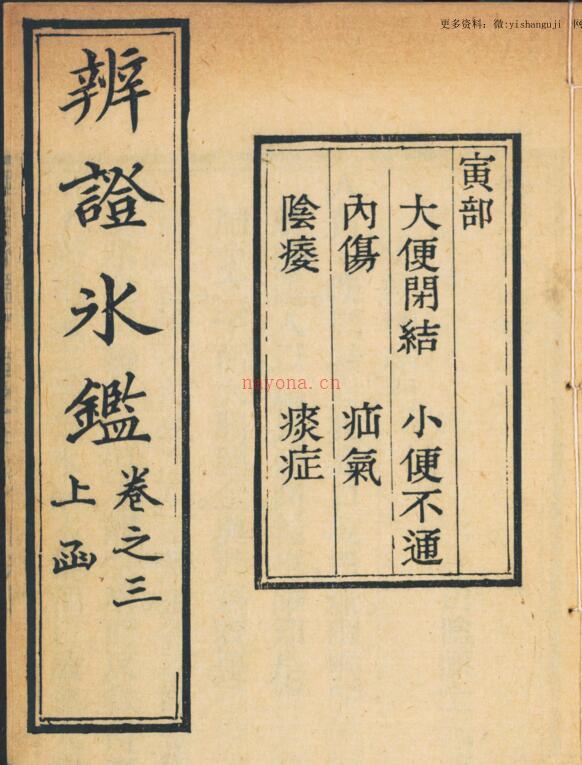 更多资料：微:yishanguji 网
寅部
大便閉結 小便不通
內傷 疝氣
陰痿 痰症
辨證氷鑑
卷之三
上函
nayona.cn